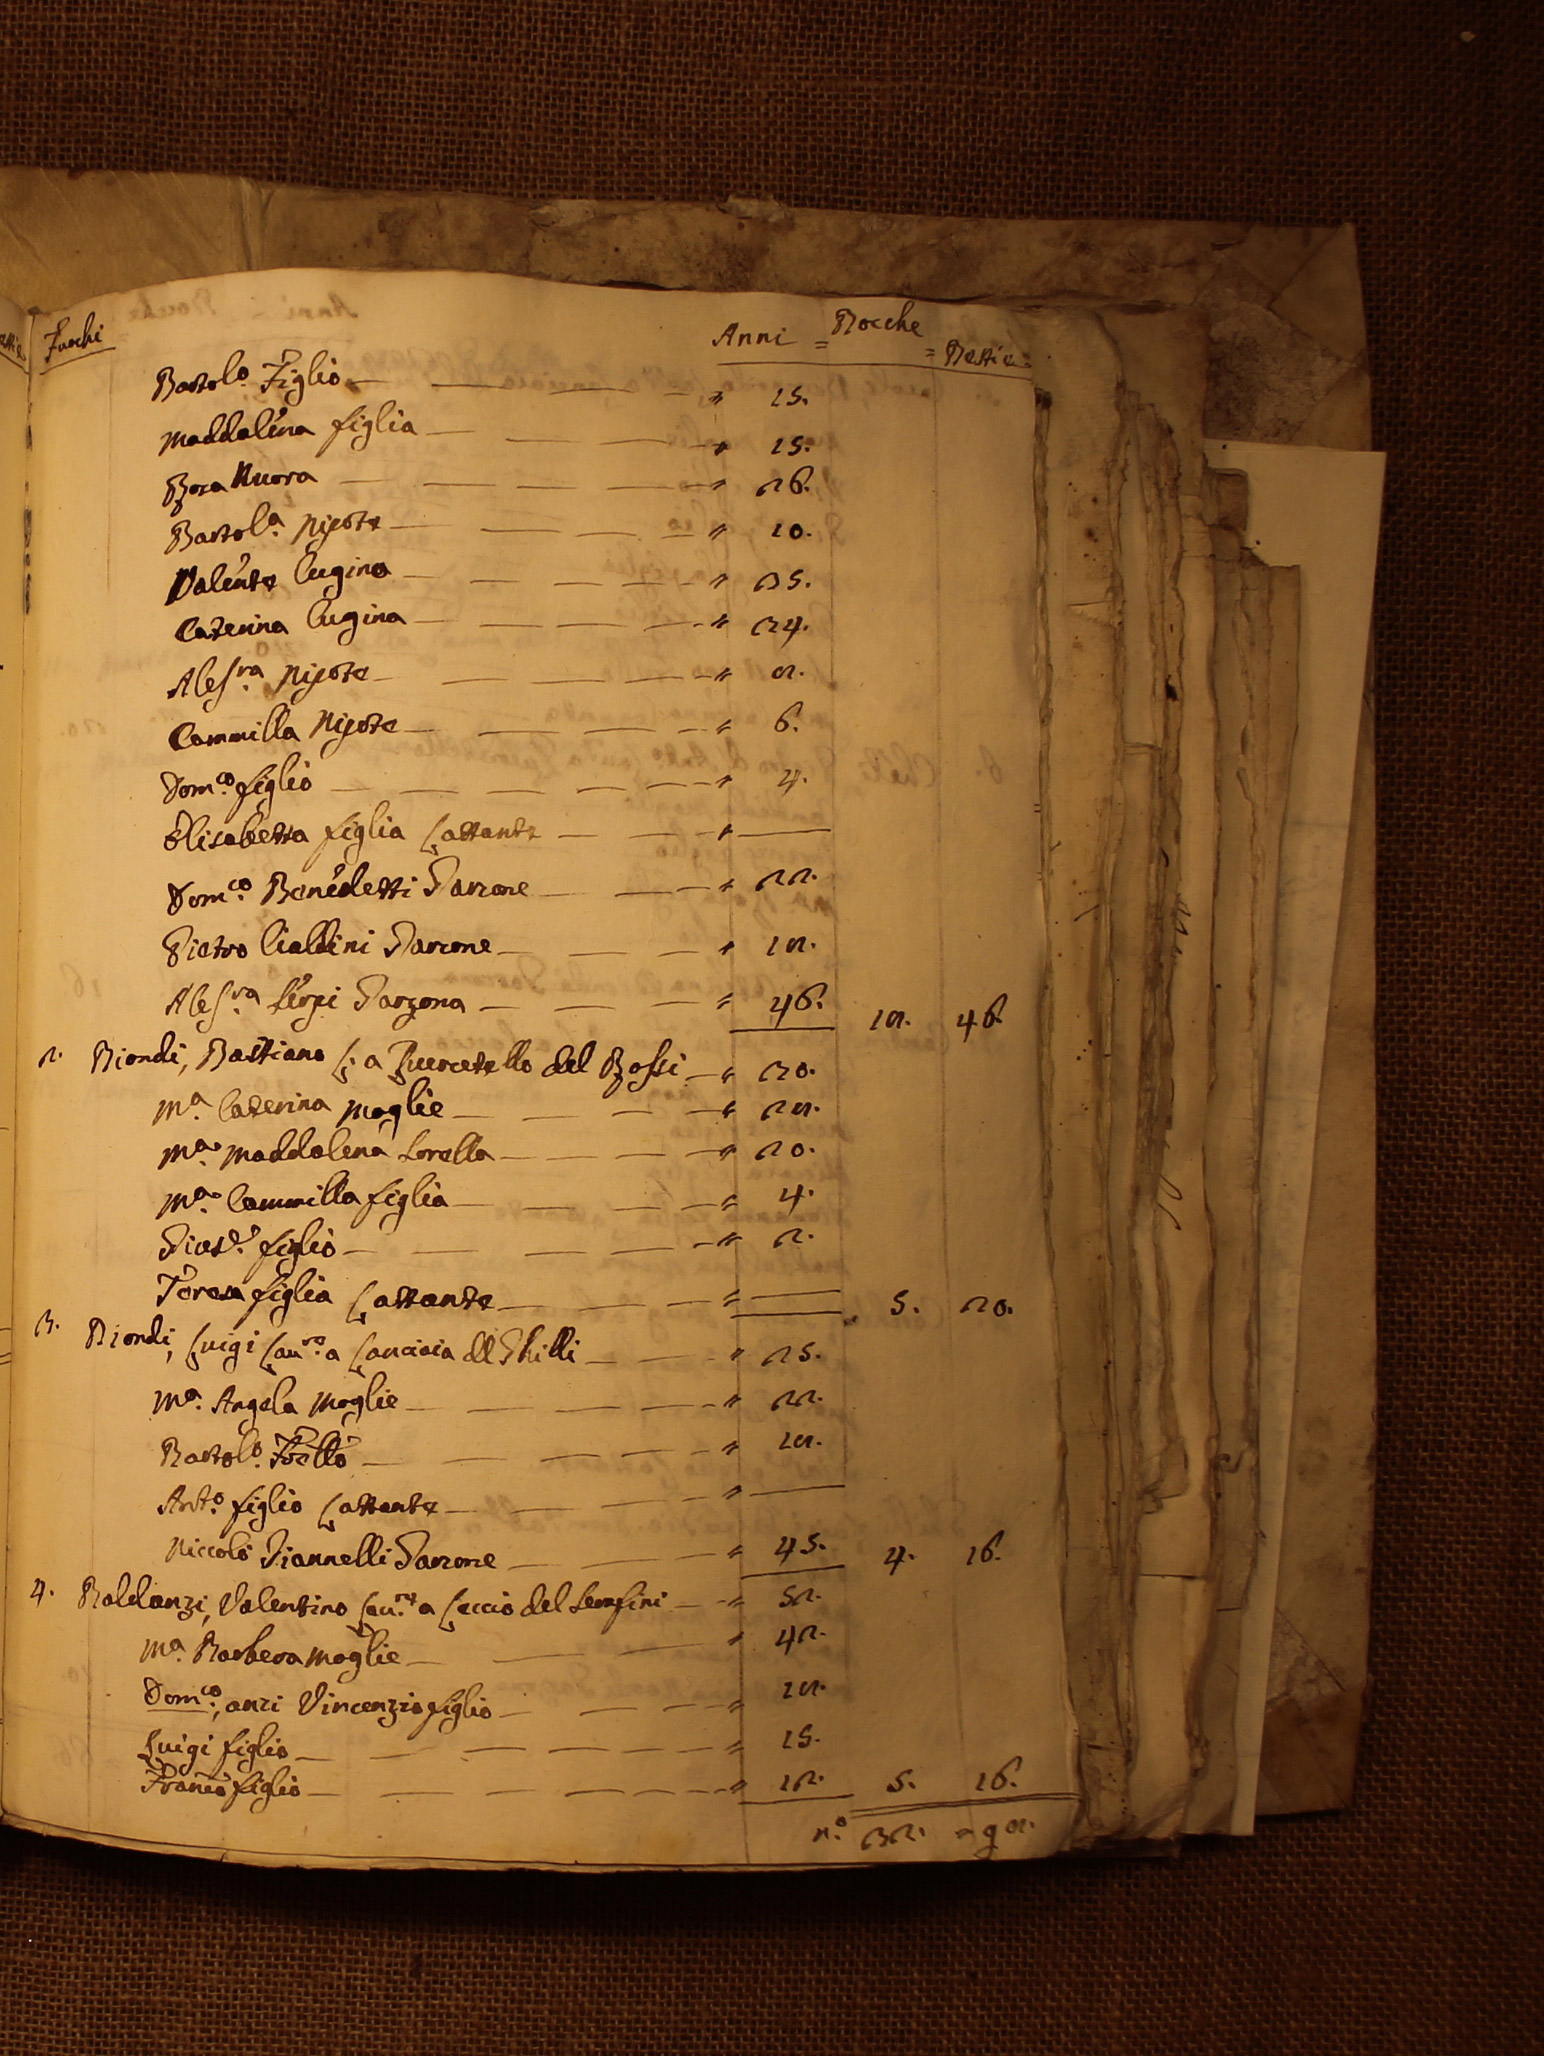 Fuochi Anni = Bocche = Bestie =
Bartol.o Figlio " 15.
Maddalena figlia " 15.
Rosa Nuora " 26.
Bartol.a Nipote " 10.
Valente Cugino " 35.
Caterina Cugina " 34.
Aless.ra Nipote " 2.
Cammilla Nipote " 6.
Dom.co figlio " 4.
Elisabetta figlia Lattante "
Dom.co Benedetti Garzone " 22.
Pietro Cialdini Garzone " 12.
Aless.ra Garzona " 46. 12. 46.
2. Biondi, Bastiano L: a Quercetello del Rossi " 30.
M.a Caterina Moglie " 22.
M.a Maddalena Sorella " 20.
M.a Cammilla figlia " 4.
Gius.e figlio " 2.
Teresa figlia Lattante " 5. 20.
3. Biondi, Luigi Lau.re a del " 25.
M.a Angela Moglie " 22.
Bartol.o Frello " 12.
Ant.o figlio Lattante "
Niccolò Giannelli Garzone " 45. 4. 16.
4. Baldanzi, Valentino Lau.re a Leccio del " 52.
M.a Barbera Moglie " 42.
Dom.co, anzi Vincenzio figlio " 12.
Luigi figlio " 15.
Franc.o figlio " 12. 5. 16.
n.o 32. = 92.